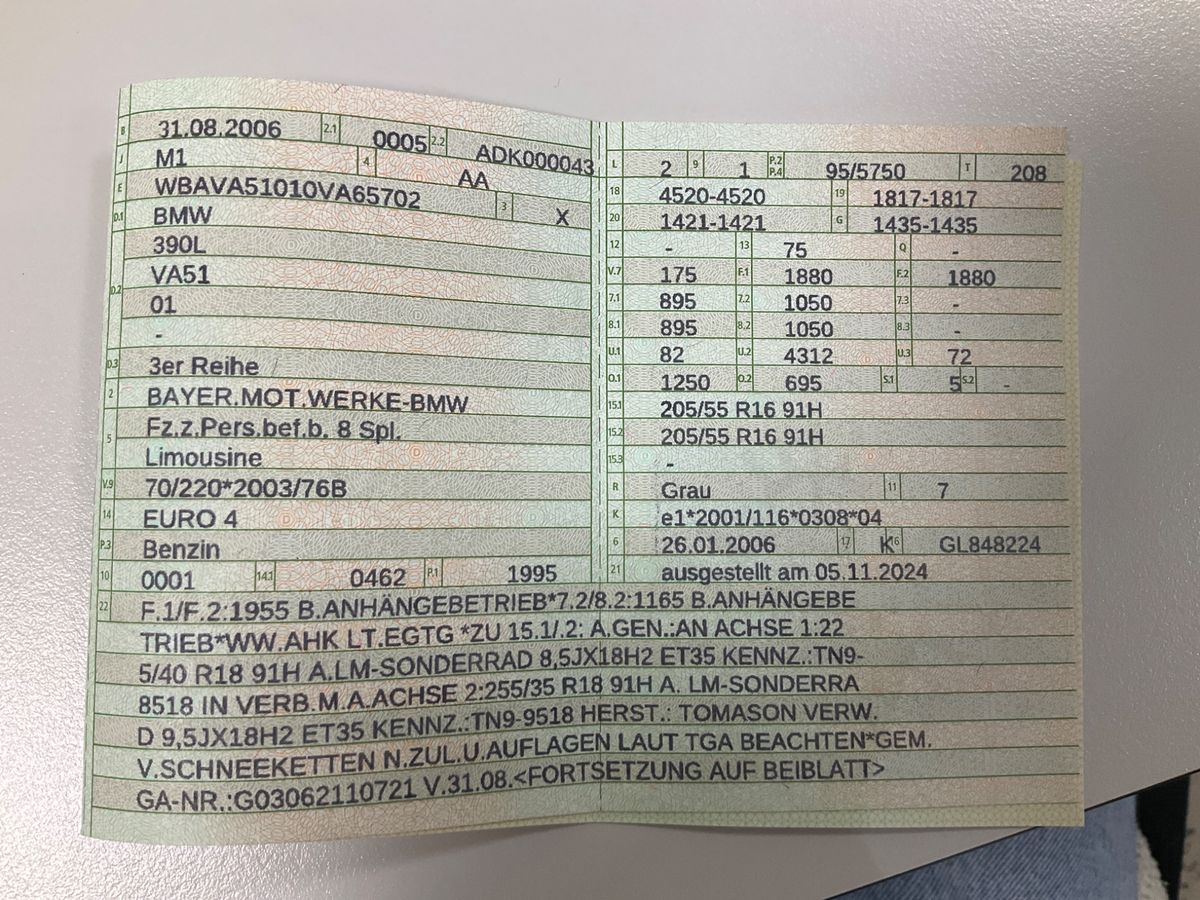 B 31.08.2006 2.1 0005 2.2 ADK000043
J M1 4 AA
E WBAVA51010VA65702 3 X
D.1 BMW
390L
D.2 VA51
01
-
D.3 3er Reihe /
2 BAYER.MOT.WERKE-BMW
5 Fz.z.Pers.bef.b. 8 Spl.
Limousine
V.9 70/220*2003/76B
14 EURO 4
P.3 Benzin
10 0001 14.1 0462 P.1 1995
L 2 9 1 P.2 P.4 95/5750 T 208
18 4520-4520 19 1817-1817
20 1421-1421 G 1435-1435
12 - 13 75 Q -
V.7 175 F.1 1880 F.2 1880
7.1 895 7.2 1050 7.3 -
8.1 895 8.2 1050 8.3 -
U.1 82 U.2 4312 U.3 72
O.1 1250 O.2 695 S.1 5 S.2 -
15.1 205/55 R16 91H
15.2 205/55 R16 91H
15.3 -
R Grau 11 7
K e1*2001/116*0308*04
6 26.01.2006 17 K 16 GL848224
21 ausgestellt am 05.11.2024
22 F.1/F.2:1955 B.ANHÄNGEBETRIEB*7.2/8.2:1165 B.ANHÄNGEBE
TRIEB*WW.AHK LT.EGTG *ZU 15.1/.2: A.GEN.:AN ACHSE 1:22
5/40 R18 91H A.LM-SONDERRAD 8,5JX18H2 ET35 KENNZ.:TN9-
8518 IN VERB.M.A.ACHSE 2:255/35 R18 91H A. LM-SONDERRA
D 9,5JX18H2 ET35 KENNZ.:TN9-9518 HERST.: TOMASON VERW.
V.SCHNEEKETTEN N.ZUL.U.AUFLAGEN LAUT TGA BEACHTEN*GEM.
GA-NR.:G03062110721 V.31.08.<FORTSETZUNG AUF BEIBLATT>